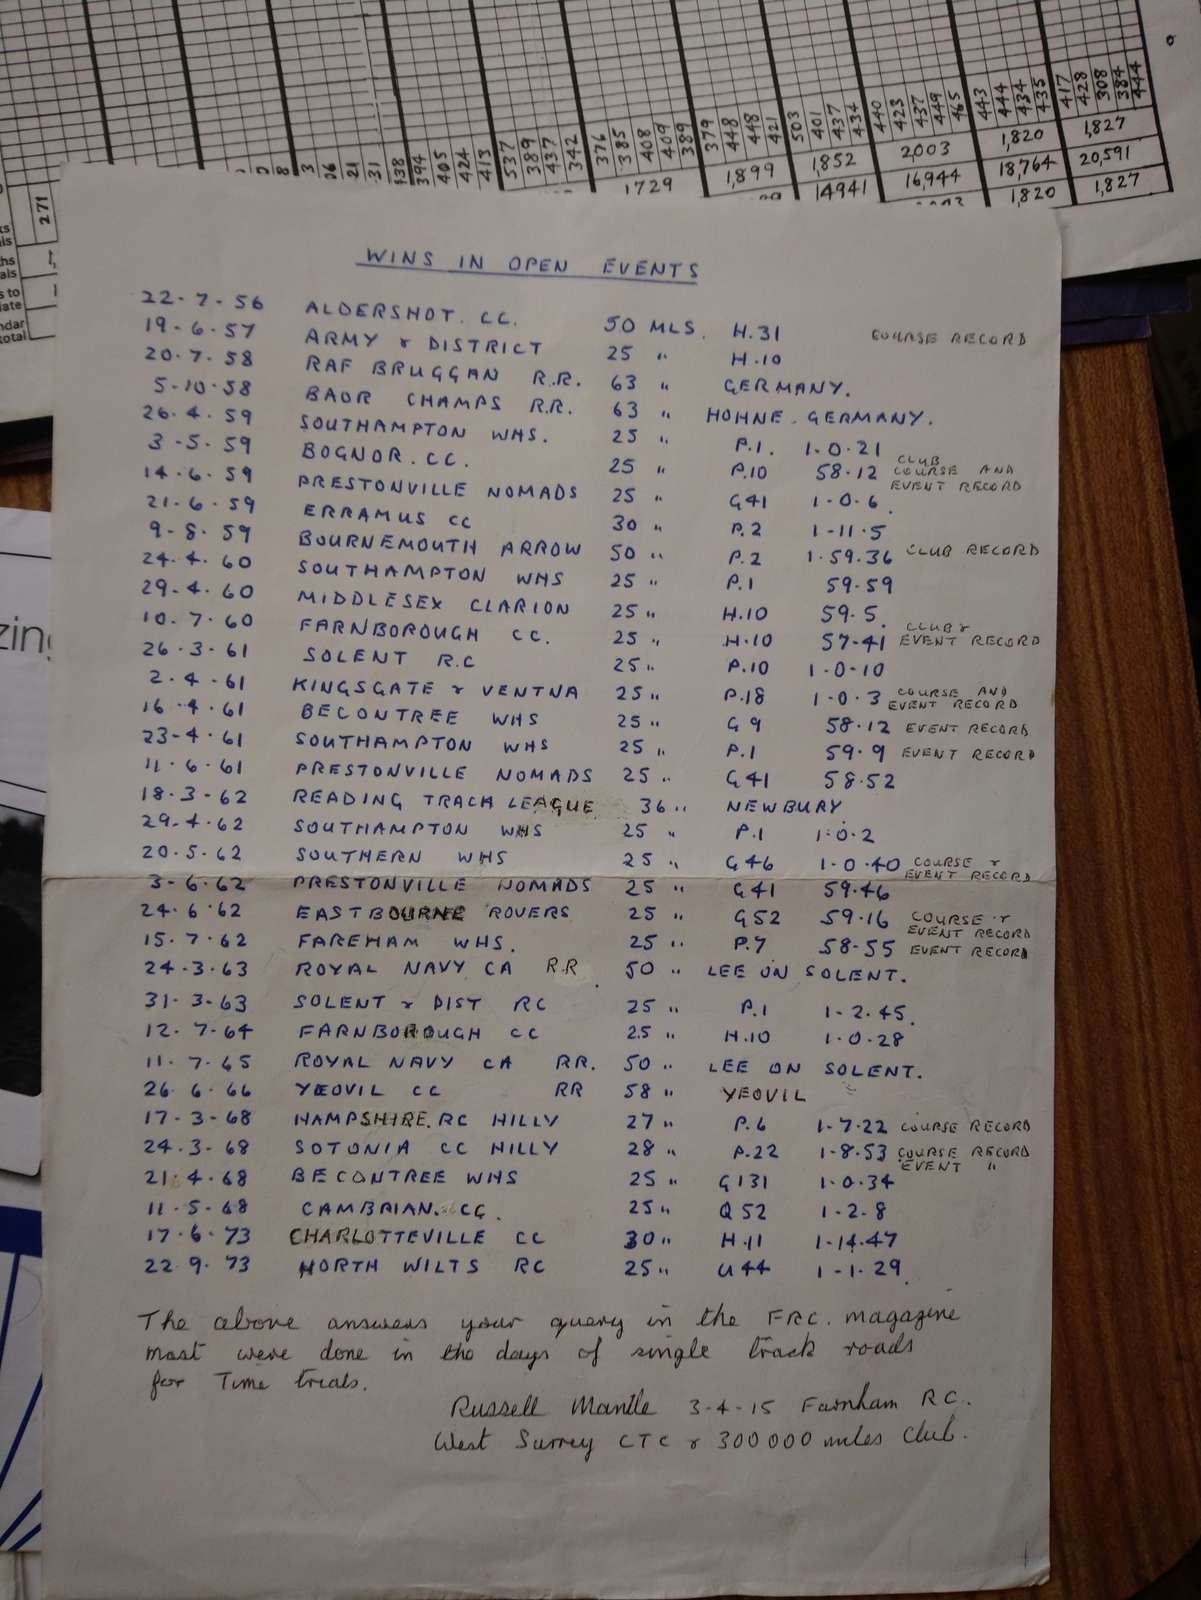 271
537 389 437 342 376 385 408 409 389 379 448 448 421 503 401 437 434 440 423 437 449 465 443 444 434 435 417 428 308 384 444
394 405 424 413
1729 1,899 1,852 2003 1,820 1,827
14941 16,944 18,764 20,591
1,820 1,827
WINS IN OPEN EVENTS
22-7-56 ALDERSHOT. CC. 50 MLS. H.31 COURSE RECORD
19-6-57 ARMY & DISTRICT 25 " H.10
20.7.58 RAF BRUGGAN R.R. 63 " GERMANY.
5-10-58 BAOR CHAMPS R.R. 63 " HOHNE. GERMANY.
26.4.59 SOUTHAMPTON WHS. 25 " P.1. 1-0.21
3-5.59 BOGNOR. CC. 25 " P.10 58.12 CLUB COURSE AND EVENT RECORD
14.6.59 PRESTONVILLE NOMADS 25 " G41 1-0.6.
21.6.59 ERRAMUS CC 30 " P.2 1-11.5
9-8.59 BOURNEMOUTH ARROW 50 " P.2 1.59.36 CLUB RECORD
24.4.60 SOUTHAMPTON WHS 25 " P.1 59-59
29-4.60 MIDDLESEX CLARION 25 " H.10 59.5.
10.7.60 FARNBOROUGH CC. 25 " H.10 57-41 CLUB & EVENT RECORD
26.3-61 SOLENT R.C 25 " P.10 1-0-10
2.4-61 KINGSGATE & VENTNA 25 " P.18 1-0.3 COURSE AND EVENT RECORD
16-4.61 BECONTREE WHS 25 " G9 58.12 EVENT RECORD
23-4.61 SOUTHAMPTON WHS 25 " P.1 59.9 EVENT RECORD
11.6.61 PRESTONVILLE NOMADS 25 " G41 58.52
18.3-62 READING TRACK LEAGUE 36 " NEWBURY
29.4.62 SOUTHAMPTON WHS 25 " P.1 1.0.2
20.5.62 SOUTHERN WHS 25 " G46 1-0.40 COURSE & EVENT RECORD
3-6.62 PRESTONVILLE NOMADS 25 " G41 59.46
24.6.62 EASTBOURNE ROVERS 25 " G52 59.16 COURSE & EVENT RECORD
15.7.62 FAREHAM WHS. 25 " P.7 58-55 EVENT RECORD
24-3.63 ROYAL NAVY CA R.R 50 " LEE ON SOLENT.
31-3.63 SOLENT & DIST RC 25 " P.1 1-2.45.
12.7-64 FARNBOROUGH CC 25 " H.10 1-0.28
11.7.65 ROYAL NAVY CA RR. 50 " LEE ON SOLENT.
26.6.66 YEOVIL CC RR 58 " YEOVIL
17-3-68 HAMPSHIRE.RC HILLY 27 " P.6 1-7.22 COURSE RECORD
24.3-68 SOTONIA CC HILLY 28 " P.22 1-8.53 COURSE RECORD EVENT "
21.4-68 BECONTREE WHS 25 " G131 1.0.34
11-5-68 CAMBRIAN. CC. 25 " Q52 1-2-8
17-6.73 CHARLOTTEVILLE CC 30 " H.11 1-14.47
22.9.73 NORTH WILTS RC 25 " U44 1-1.29.
The above answers your query in the FRC. magazine
most were done in the days of single track roads
for Time trials.
Russell Mantle 3-4-15 Farnham RC.
West Surrey CTC & 300000 miles Club.